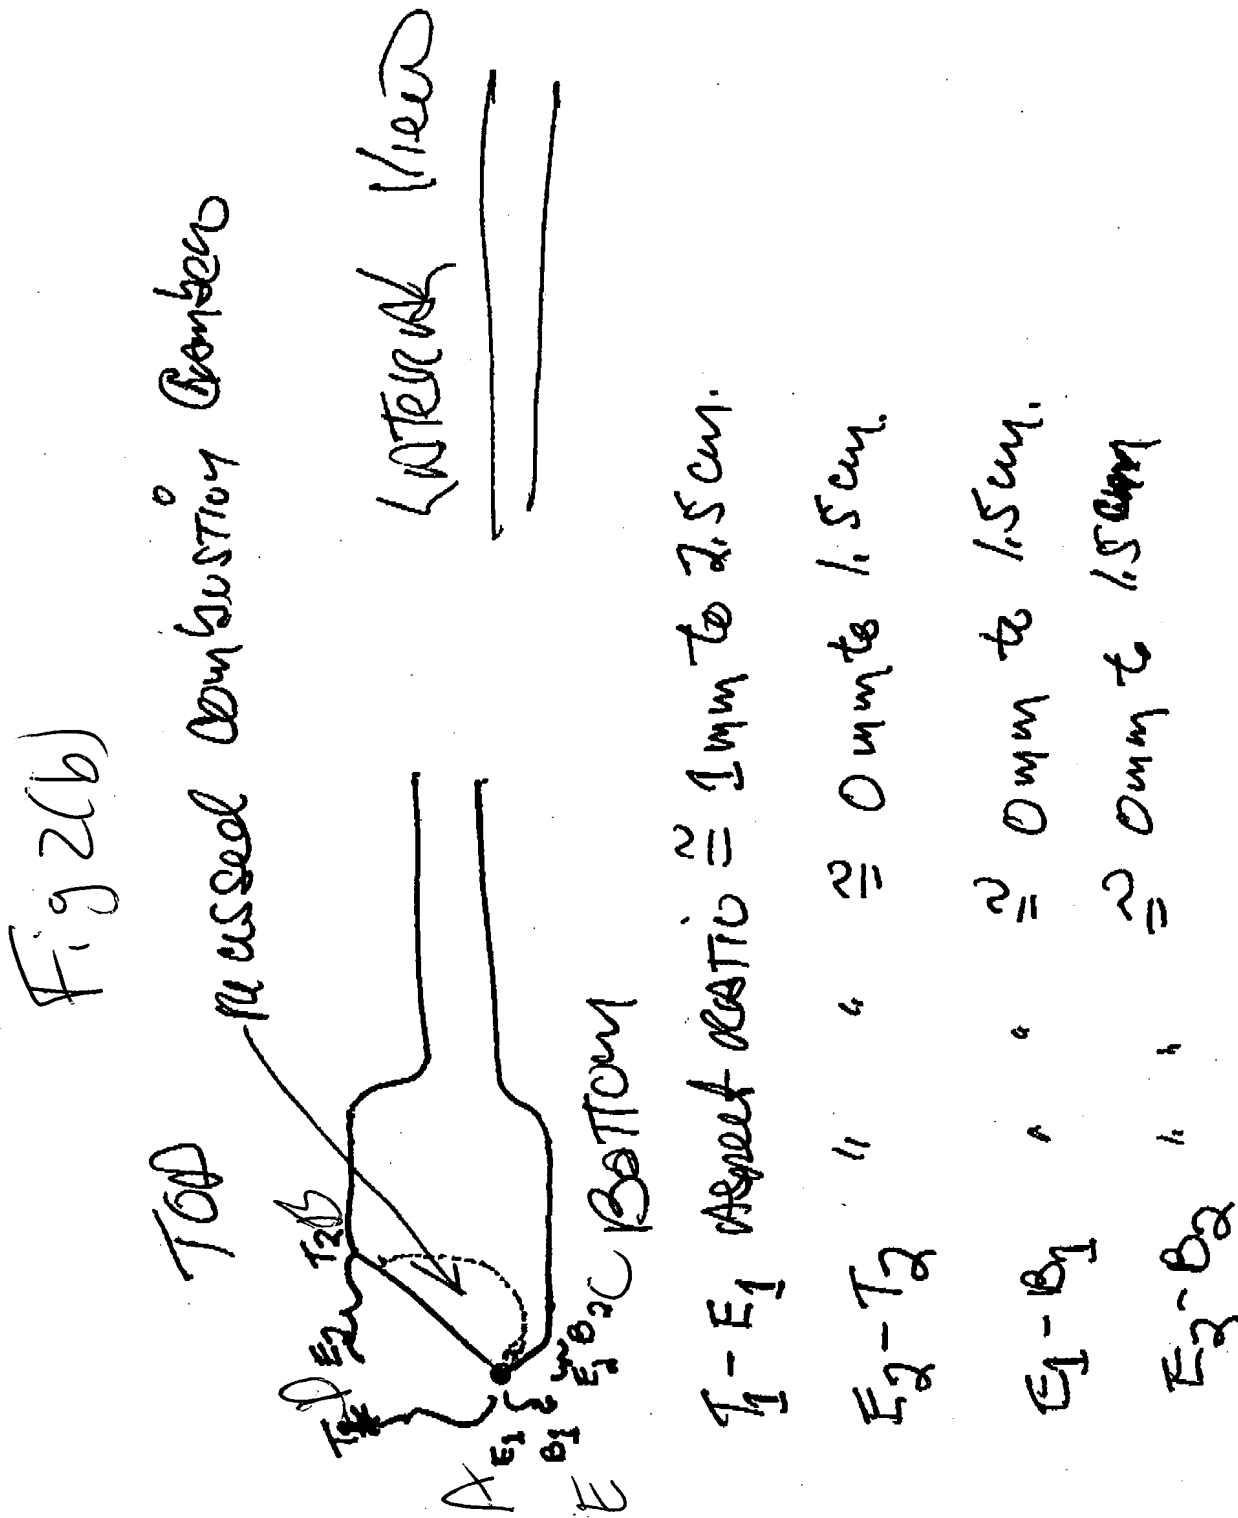 Fig 2(b)
TOP
recussed combustion chamber
LATERAL View
T2 B
E2
D
T1
A
E1
B1
E
E2
B2 C
BOTTOM
T1 - E1 Aspect RATIO ≅ 1mm to 2.5 cm.
E2 - T2 " " ≅ 0mm to 1.5 cm.
E1 - B1 " " ≅ 0mm to 1.5 cm.
E2 - B2 " " ≅ 0mm to 1.5 cm